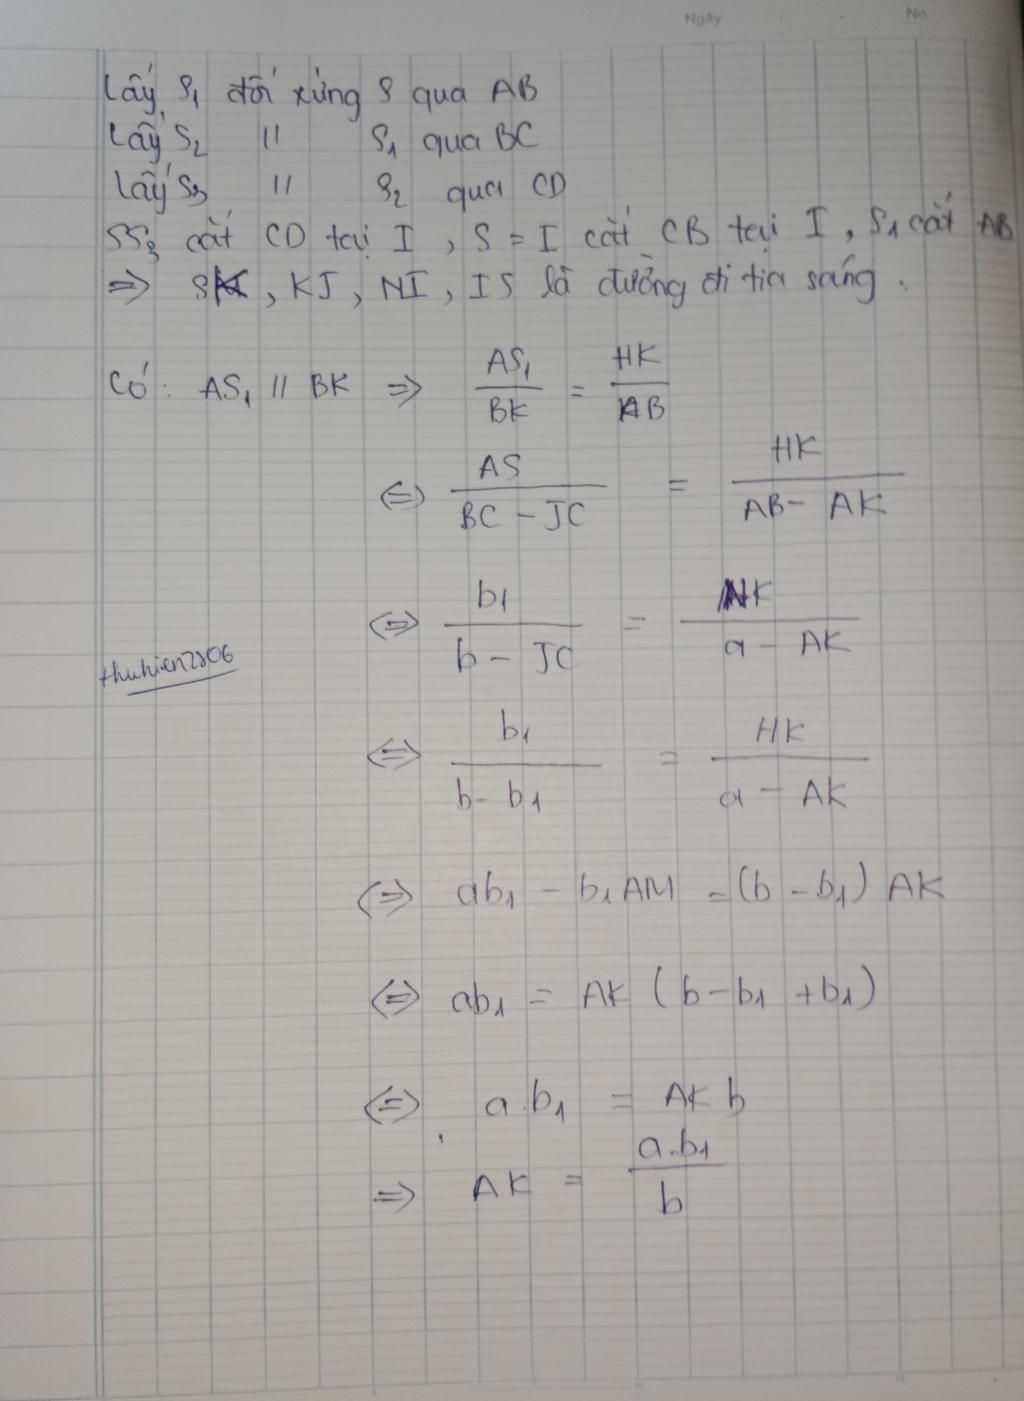 Ngày No.
Lấy S₁ đối xứng S qua AB
Lấy S₂ // S₁ qua BC
Lấy S₃ // S₂ qua CD
SS₃ cắt CD tại I , S = I cắt CB tại I , S₁ cắt AB
⇒ SK , KJ , NI , IS là đường đi tia sáng .
Có : AS₁ // BK ⇒ AS₁/BK = HK/AB
⇔ AS/(BC - JC) = HK/(AB - AK)
⇔ b₁/(b - JC) = NK/(a - AK)
thuhien2206
⇔ b₁/(b - b₁) = HK/(a - AK)
⇔ ab₁ - b₁AM = (b - b₁) AK
⇔ ab₁ = AK (b - b₁ + b₁)
⇔ a.b₁ = AK b
⇒ AK = a.b₁/b